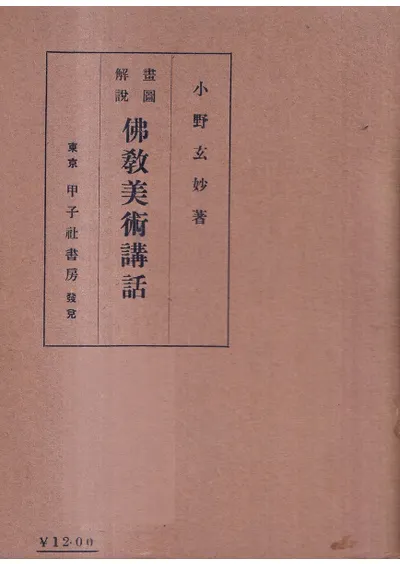 小野玄妙著
畫圖解說
佛敎美術講話
東京 甲子社書房 發兌
¥12.00